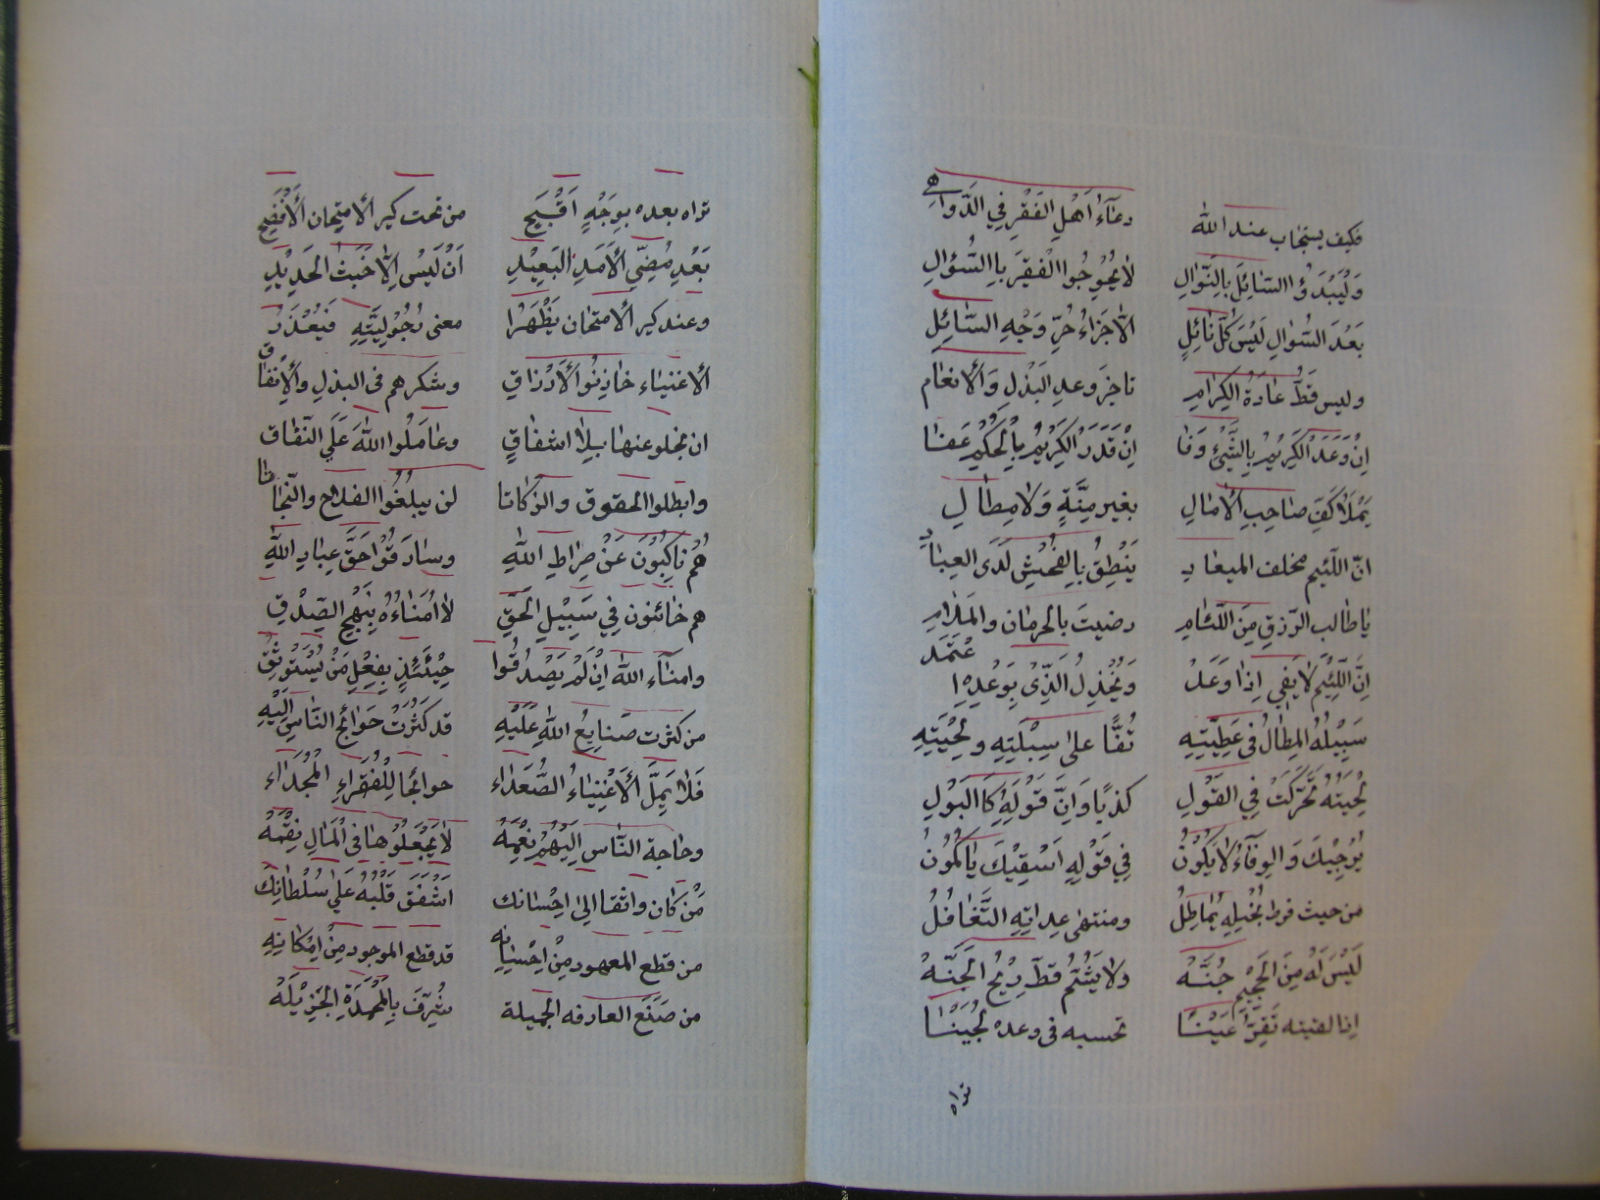 فكيف يستجاب عند الله دعاء اهل الفقر في الدواهي
وليبدؤا السائل بالنوال لا يحوجوا الفقير بالسؤال
بعد السؤال ليس كل نائل الا جزاء حر وجه السائل
وليس قط عادة الكرام تاخير وعد البذل والانعام
ان وعد الكريم بالشئ وفا ان قدر الكريم بالحكم عفا
يملا كف صاحب الامال بغير منة ولا مطال
ان اللئيم مخلف الميعاد ينطق بالفحش لدى العباد
يا طالب الرزق من اللئام رضيت بالحرمان والملام
ان اللئيم لا يفي اذا وعد ويخذل الذي بوعده اعتمد
سبيله المطال في عطيته تفا على سبلته ولحيته
لحيته تحركت في القول كذبا وان قوله كالبول
يرجيك والوفاء لا يكون في قوله اسقيك يا كمون
من حيث فرط بخيله يماطل ومنتهى عداته التغافل
ليس له من الجحيم جنه ولا يشم قط ريح الجنه
اذا لقيته تقر عينا تحسبه في وعده لجينا
تراه
تراه بعده بوجه اقبح من تحت كير الامتحان الافضح
بعد مضي الامد البعيد ان ليس الا خبث الحديد
وعند كير الامتحان يظهرا معنى
الاغنياء خازنوا الارزاق وشكرهم في البذل والانفاق
ان يخلو عنها بلا اشفاق وعاملوا الله على النفاق
وابطلوا الحقوق والزكاتا لن يبلغوا الفلاح والنجاتا
هم ناكبون عن صراط الله وسارقوا حق عباد الله
هم خائنون في سبيل الحق لا امناءه بنهج الصدق
وامناء الله ان لم يصدقوا حينئذ بفعل من يستوثق
من كثرت صنايع الله عليه قد كثرت حوائج الناس اليه
فلا يمل الاغنياء الصعداء حوائجا للفقراء المجداء
وحاجة الناس اليهم نعمه لا يجعلوها في المال نقمه
من كان واثقا الى احسانك اشفق قلبه على سلطانك
من قطع المعهود من احسانه قد قطع الموجود من امكانه
من صنع العارفه الجميلة شرف بالمحمدة الجزيله